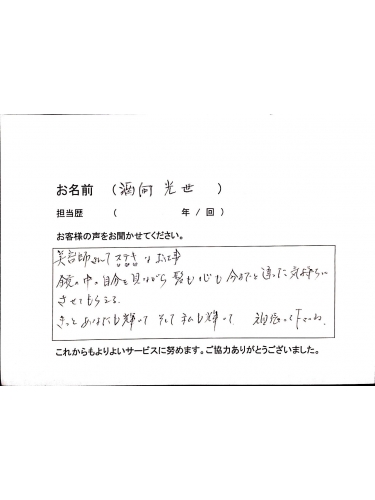 お名前 (酒向 光世 )
担当歴 ( 年 / 回 )
お客様の声をお聞かせてください。
美容師さんってステキなお仕事
鏡の中の自分を見ながら 髪も心も 今までと違った気持ちに
させてもらえる。
きっと あなたも輝いて そして 私も輝いて 頑張って下さいね
これからもよりよいサービスに努めます。ご協力ありがとうございました。